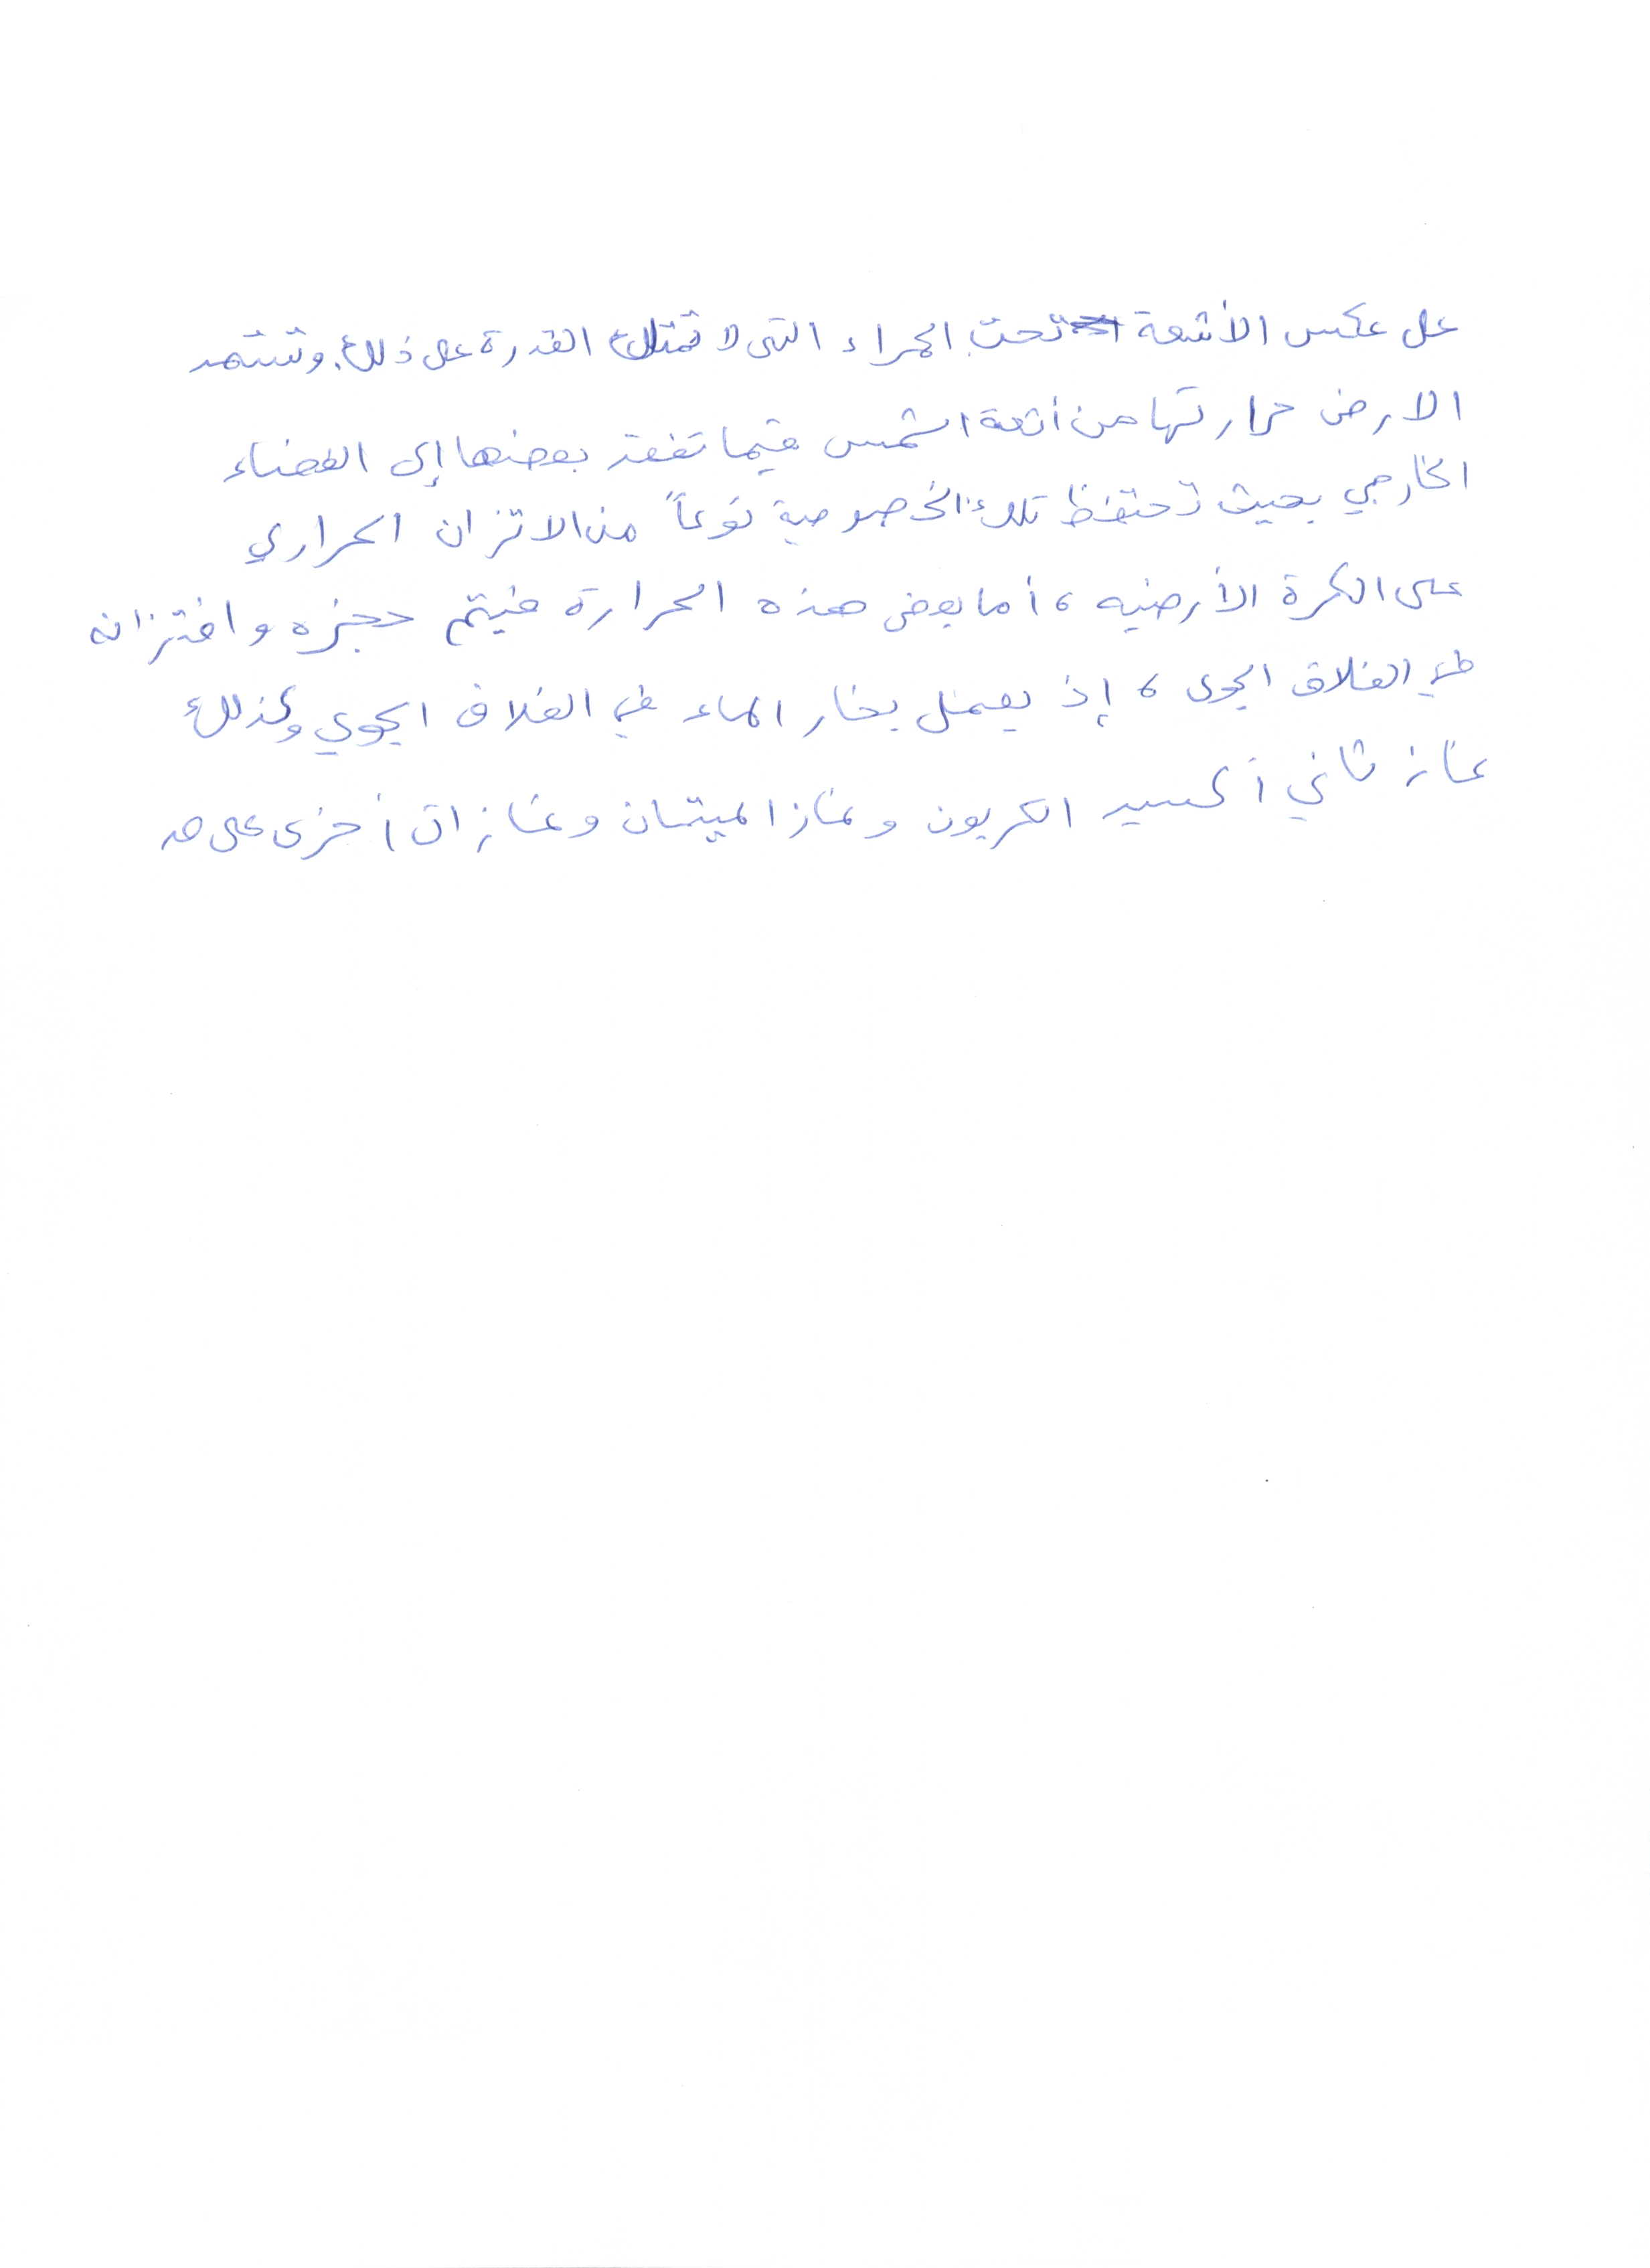 على عكس الأشعة تحت الحمراء التي لا تمتلك القدرة على ذلك. وتستمد
الارض حرارتها من أشعة الشمس فيما تفقد بعضها إلى الفضاء
الخارجي بحيث تحتفظ تلك الخصوصية نوعاً من الاتزان الحراري
على الكرة الأرضيه ، أما بعض هذه الحرارة فيتم حجزه واختزانه
في الغلاف الجوى ، إذ يعمل بخار الماء في الغلاف الجوي وكذلك
غاز ثاني أكسيد الكربون وغاز الميثان وغازات أخرى على صد